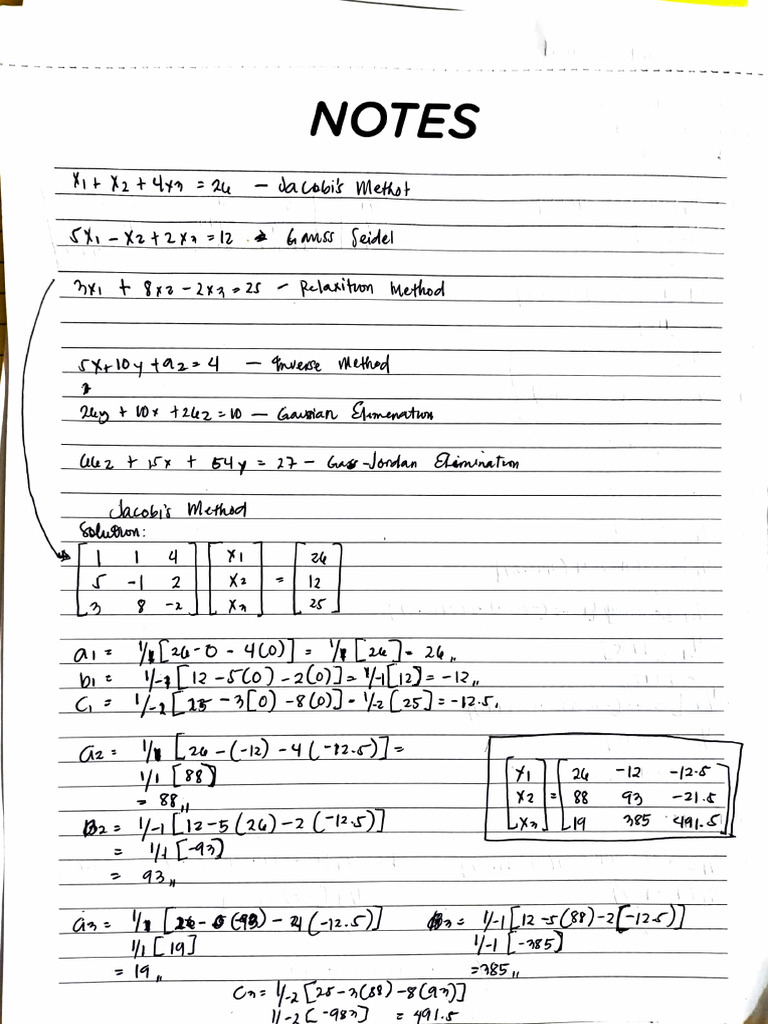 NOTES
x1 + x2 + 4x3 = 26 – Jacobi's Methot
5x1 – x2 + 2x3 = 12 → Gauss Seidel
3x1 + 8x2 – 2x3 = 25 – Relaxition Method
5x+10y+9z = 4 – Inverse Method
26y + 10x + 26z = 10 – Gaussian Elimenation
66z + 15x + 54y = 27 – Gass-Jordan Elimination
Jacobi's Method
Solution:
[1 1 4] [x1] [26]
[5 -1 2] [x2] = [12]
[3 8 -2] [x3] [25]
a1 = 1/1 [26-0 - 4(0)] = 1/1 [26] = 26,,
b1 = 1/-1 [12 - 5(0) - 2(0)] = 1/-1 [12] = -12,,
C1 = 1/-2 [25 - 3[0) - 8(0)] = 1/-2 [25] = -12.5,
a2 = 1/1 [26 - (-12) - 4(-12.5)] =
1/1 [88]
= 88,,
B2 = 1/-1 [12-5(26) -2(-12.5)]
= 1/1 [-93]
= 93,,
[x1] [26 -12 -12.5]
[x2] = [88 93 -21.5]
[x3] [19 385 491.5]
a3 = 1/1 [26 - (93) - 4(-12.5)]
1/1 [19]
= 19,,
B3 = 1/-1 [12 -5(88) -2[-12.5)]
1/-1 [-385]
=385,,
C3 = 1/-2 [25 -3(88) -8(93)]
1/-2 [-983] = 491.5